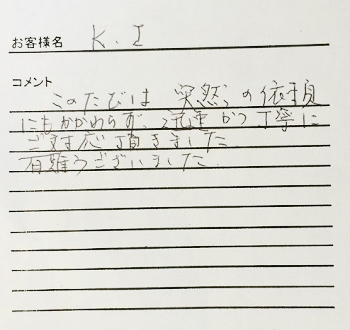 お客様名 K.I
コメント
このたびは 突然の依頼
にもかかわらず、迅速かつ丁寧に
ご対応頂きました
有難うございました.